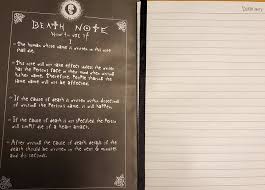 DEATH NOTE
How to use it
I
The human whose name is written in this note
shall die.
This note will not take effect unless the writer
has the Person's face in their mind when writing
his/her name. Therefore, People sharing the
same name will not be affected.
If the cause of death is written within
of writing the Person's name, it will happen.
If the cause of death is not specified the Person
will simply die of a heart attack.
After writing the cause of death, details of the
death should be written in the next 6 minutes
and 40 seconds.